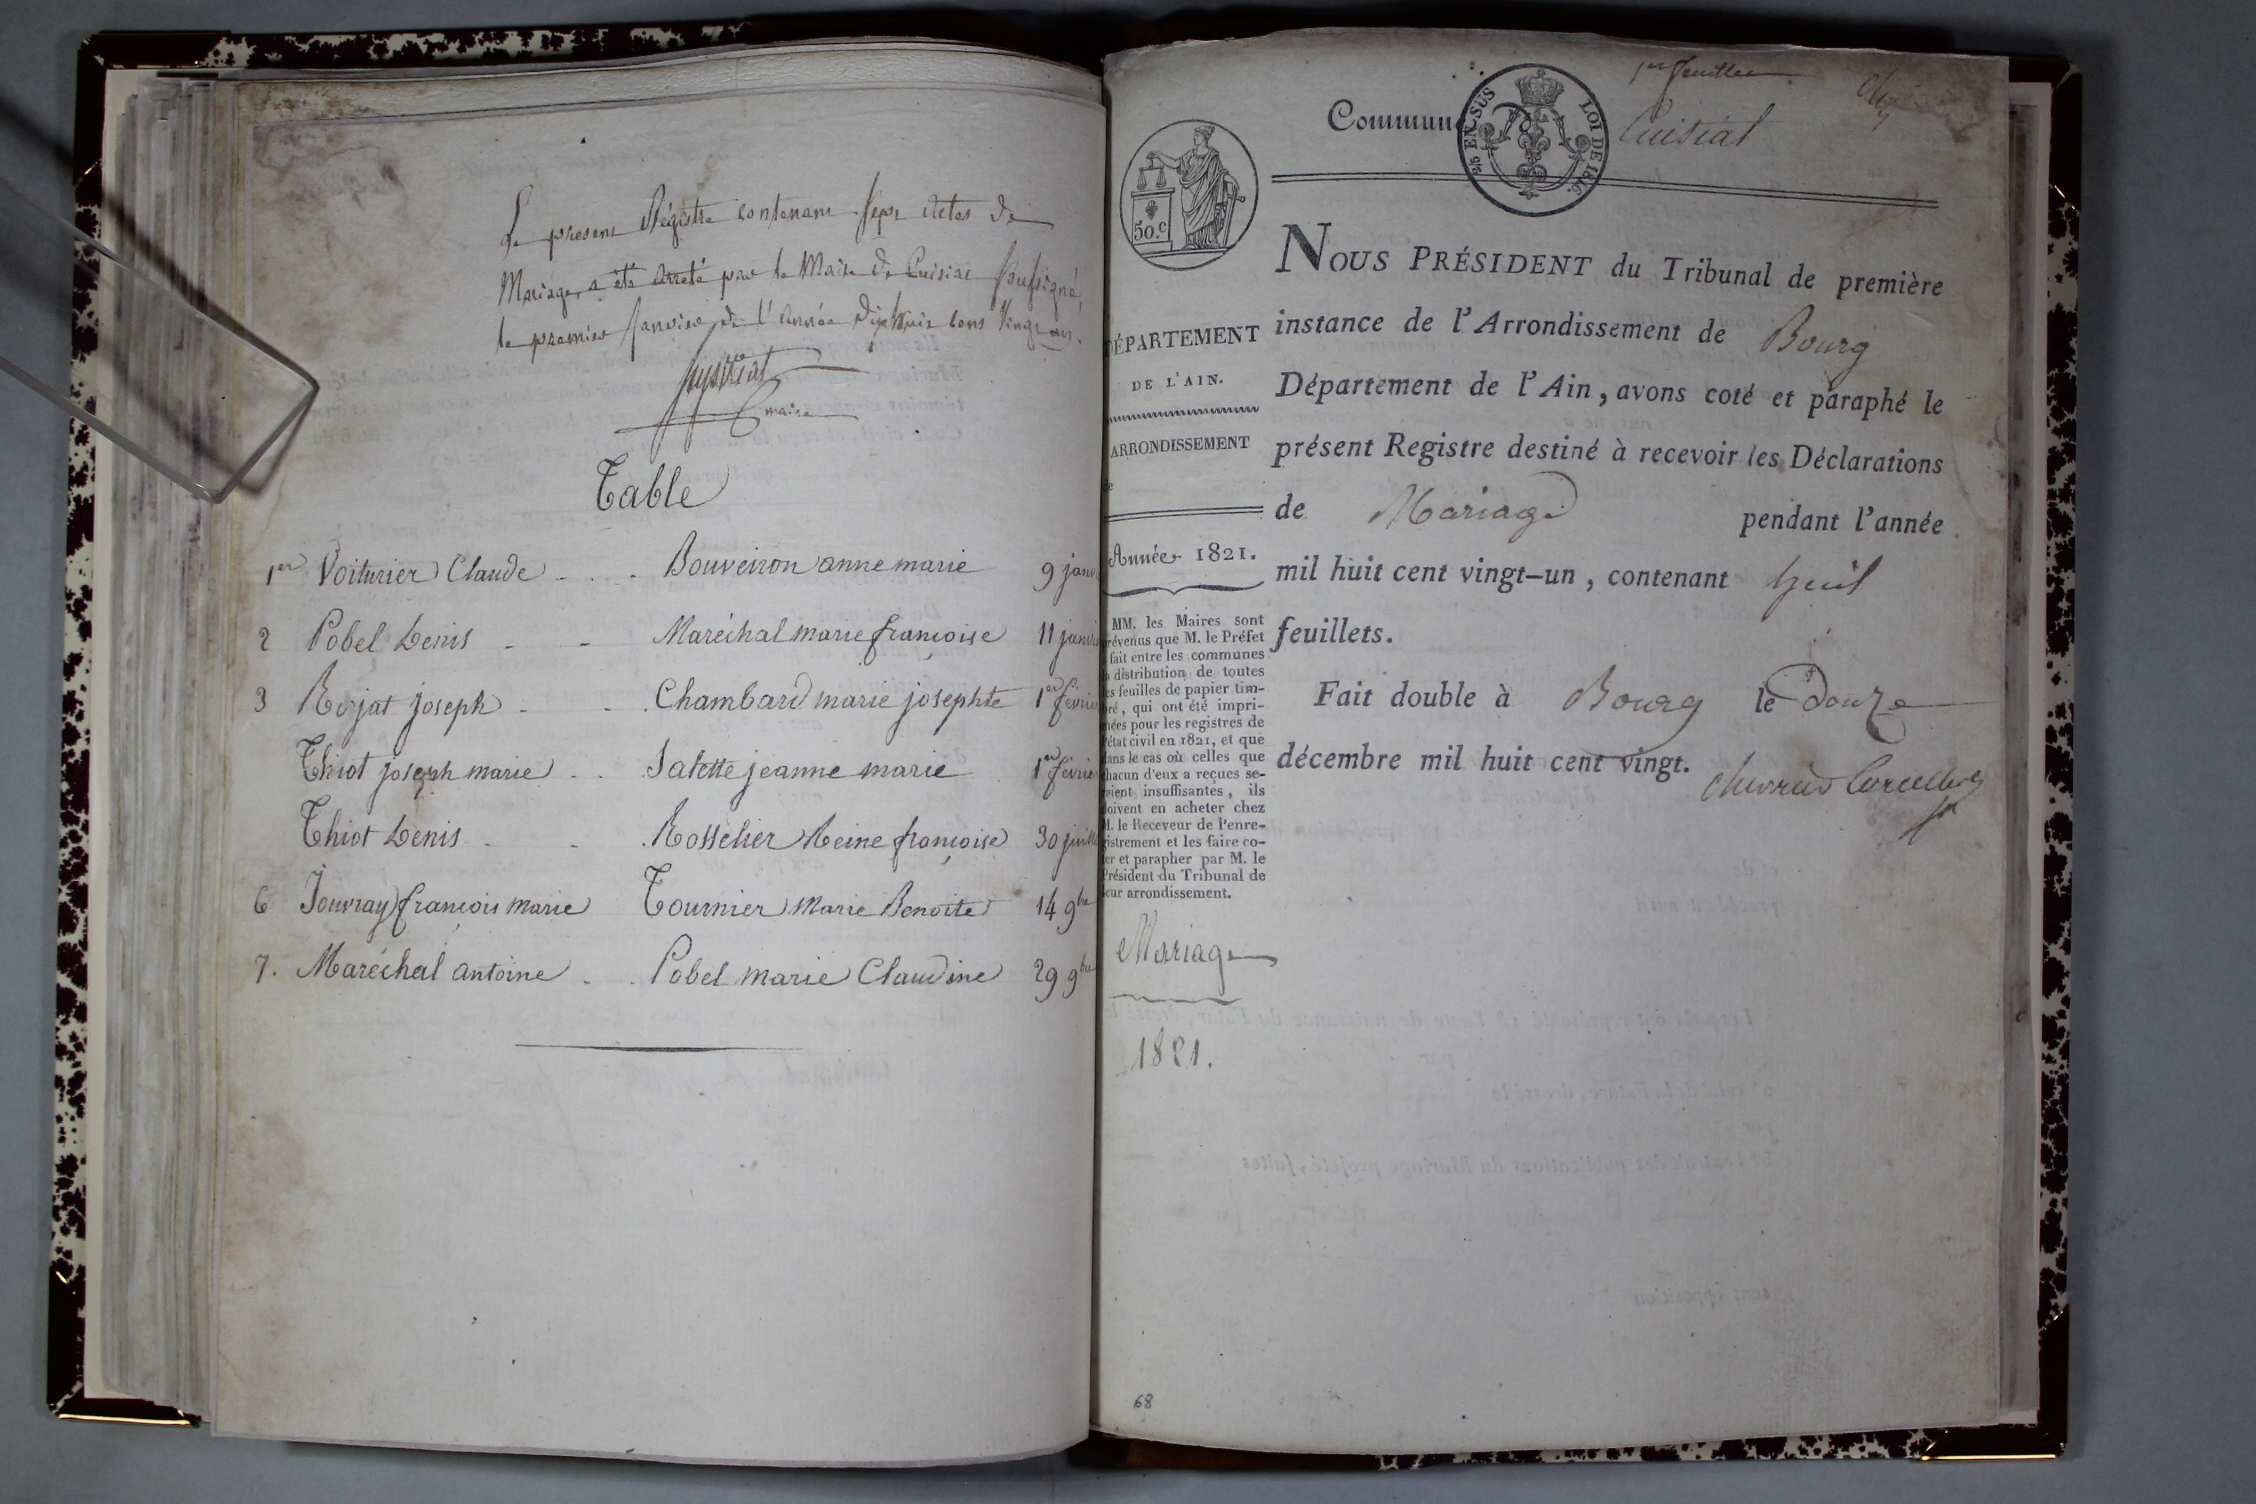 Le present Régistre contenant sept actes de
Mariage, a été arreté par le Maire de Cuisiat soussigné,
le premier janvier de l'année dix huit cens vingt un.
maire
Table
1er Voiturier Claude - - - Bouveiron anne marie 9 janv
2 Pobel Denis - - Maréchal marie françoise 11 janvi
3 Rerjat joseph - - Chambard marie josephte 1er févrie
Thiot joseph marie - - Salette jeanne marie 1er févrie
Thiot Denis - - Rosselier Reine françoise 30 juill
6 Jouvray françois marie Tournier Marie Benoite 14 9bre
7. Maréchal antoine - - Pobel marie Claudine 29 9bre
1er feuillet
Commun Cuisiat
2/5 EN SUS LOI DE 1816.
50.c
NOUS PRÉSIDENT du Tribunal de première
instance de l'Arrondissement de Bourg
Département de l'Ain, avons coté et paraphé le
présent Registre destiné à recevoir les Déclarations
de Mariage pendant l'année
mil huit cent vingt-un, contenant huit
feuillets.
Fait double à Bourg le douze
décembre mil huit cent vingt.
DÉPARTEMENT
DE L'AIN.
ARRONDISSEMENT
de
Année 1821.
MM. les Maires sont
prévenus que M. le Préfet
a fait entre les communes
la distribution de toutes
les feuilles de papier tim-
bré, qui ont été impri-
mées pour les registres de
l'état civil en 1821, et que
dans le cas où celles que
chacun d'eux a reçues se-
raient insuffisantes, ils
doivent en acheter chez
M. le Receveur de l'enre-
gistrement et les faire co-
ter et parapher par M. le
Président du Tribunal de
leur arrondissement.
Mariage
1821.
68